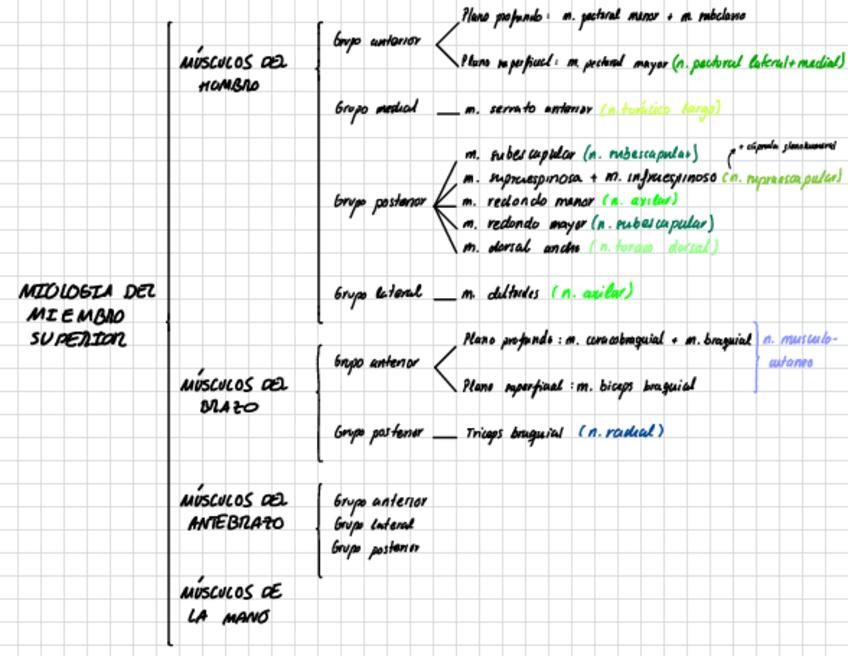 MIOLOGIA DEL
MIEMBRO
SUPERIOR
MÚSCULOS DEL
HOMBRO
Grupo anterior
Plano profundo: m. pectoral menor + m. subclavio
Plano superficial: m. pectoral mayor (n. pectoral lateral + medial)
Grupo medial — m. serrato anterior (n. torácico largo)
Grupo posterior
m. subescapular (n. subescapular)
+ cápsula glenohumeral
m. supraespinoso + m. infraespinoso (n. supraescapular)
m. redondo menor (n. axilar)
m. redondo mayor (n. subescapular)
m. dorsal ancho (n. toraco dorsal)
Grupo lateral — m. deltoides (n. axilar)
MÚSCULOS DEL
BRAZO
Grupo anterior
Plano profundo: m. coracobraquial + m. braquial
Plano superficial: m. biceps braquial
n. musculo-
cutaneo
Grupo posterior — Triceps braquial (n. radial)
MÚSCULOS DEL
ANTEBRAZO
Grupo anterior
Grupo lateral
Grupo posterior
MÚSCULOS DE
LA MANO